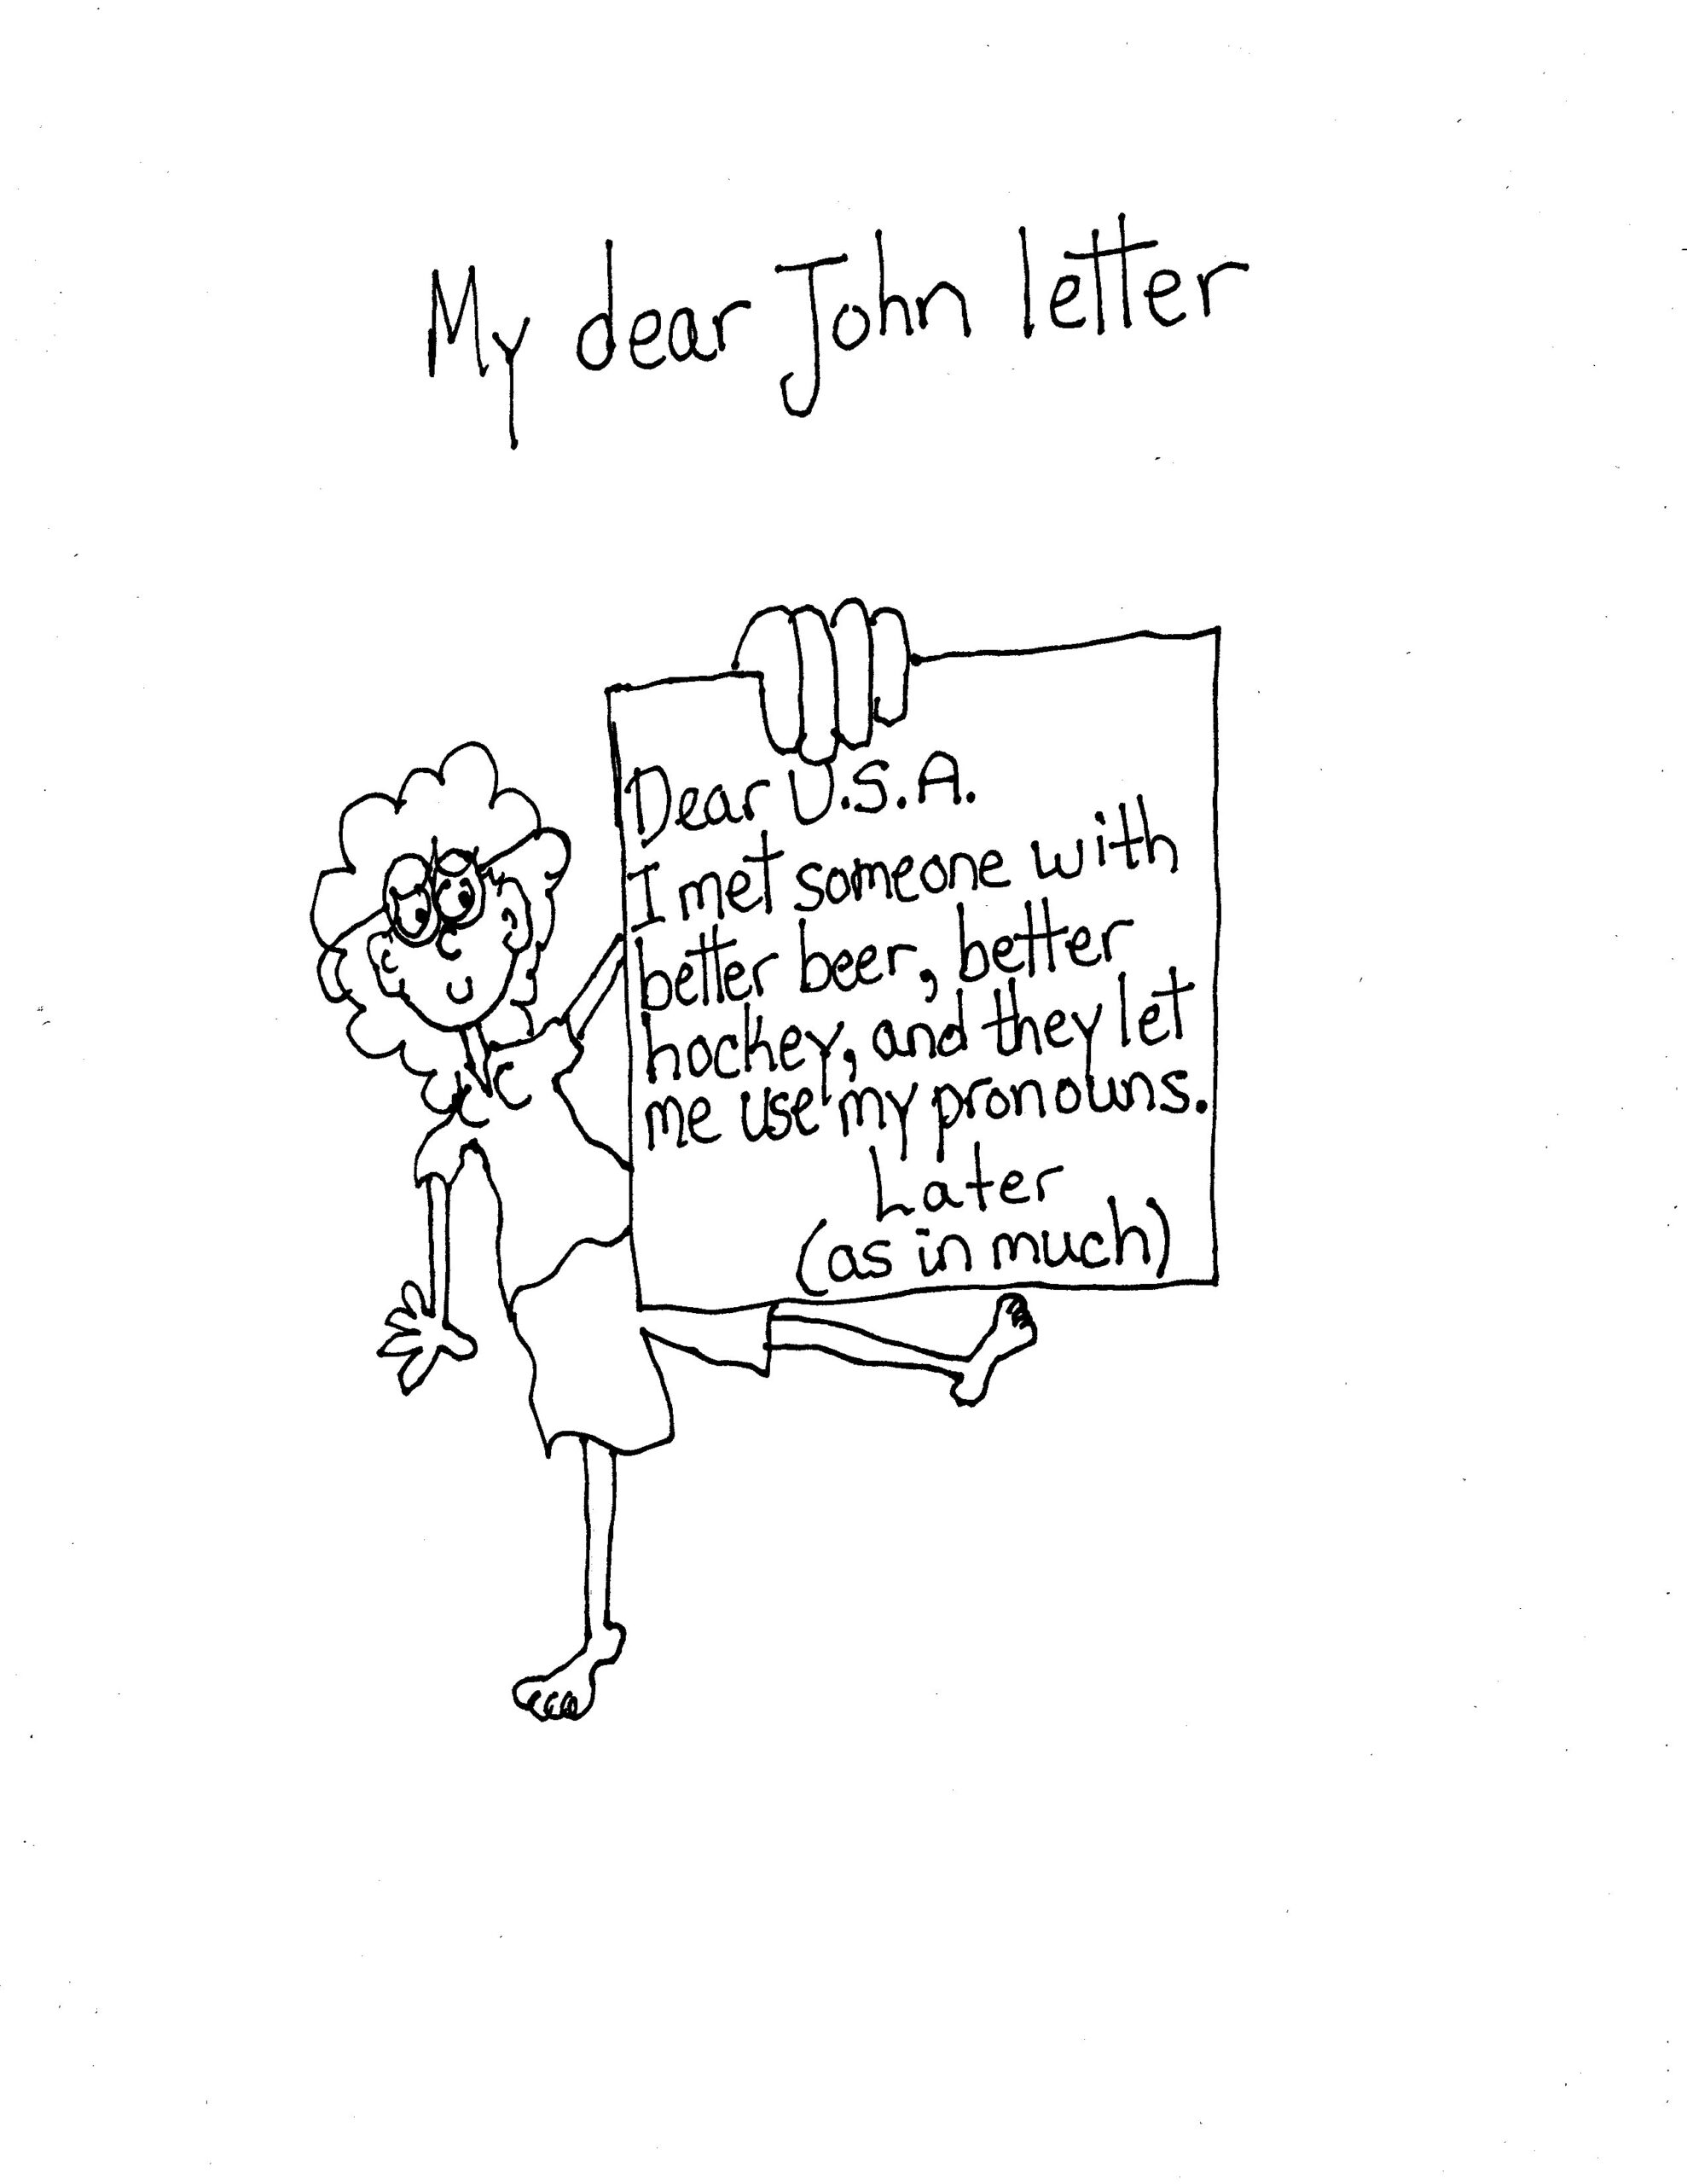 My dear John letter
Dear U.S.A.
I met someone with
better beer, better
hockey, and they let
me use my pronouns.
Later
(as in much)